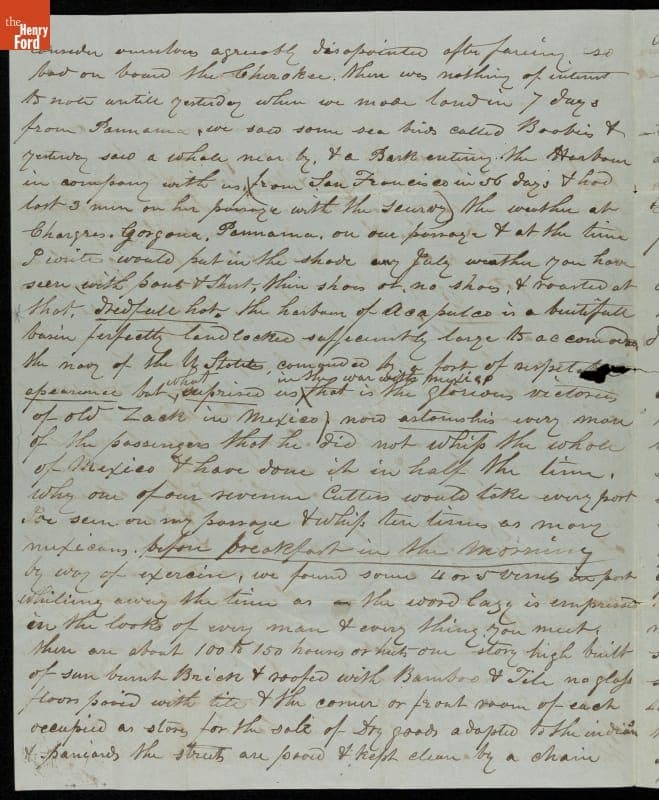 the
Henry
Ford
consider ourselves agreeably disapointed after faring so
bad on board the Cherokee. there was nothing of interest
to note untill yesterday when we made land in 7 days
from Pannama, we saw some sea birds called Boobies &
yesterday saw a whale near by, & a Bark entering the Harbour
in company with us from San Francisco in 56 days & had
lost 3 men on her passage with the scurvy) the weather at
Chargres. Gorgona, Pannama. on our passage & at the time
I write would put in the shade any July weather you have
seen with pants & Shirt, thin shoes or no shoes, & roasted at
that. dredfull hot. the harbour of Acapulco is a beutifull
basin perfectly landlocked sufficiently large to accomodate
the navy of the U States, comanded by a fort of
in the war with mexico
apearance but what suprised us that is the glorious victories
of old Zack in Mexico) now astonishis every man
of the passengers that he did not whip the whole
of Mexico & have done it in half the time.
Why one of our revenue Cutters would take every port
I've seen on my passage & whip ten times as many
mexicans. before breakfast in the morning
by way of exercise, we found some 4 or 5 vessels in port
whiling away the time as the word lazy is expressed
in the looks of every man & every thing you meet,
there are about 100 to 150 houses or huts one story high built
of sun burnt Brick & roofed with Bamboo & Tile no glass
floors paved with tile & the corner or front room of each
occupied as stores for the sale of Dry goods adapted to the indian
& spaniards the streets are paved & kept clean by a chain